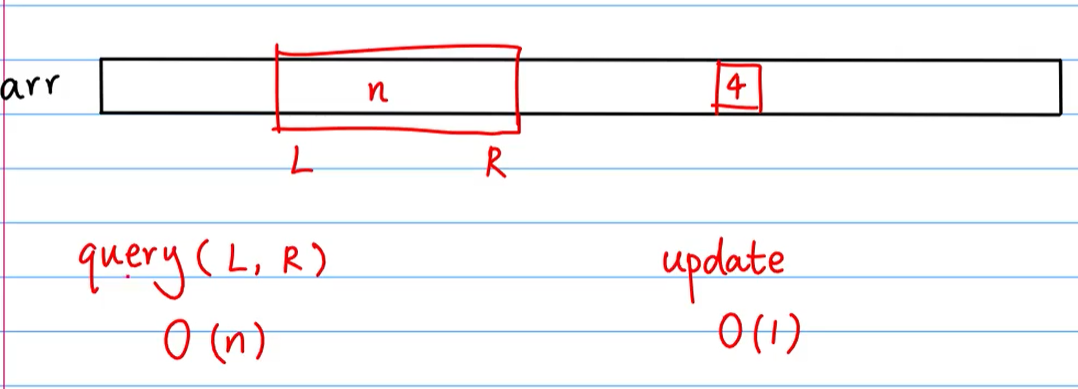 arr n 4
L R
query(L, R) update
O(n) O(1)